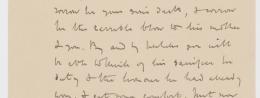 sorrow he your sins death, & sorrow
for the terrible blow to his mother
& you. By and by perhaps you will
be able to think of his sacrifice to
duty & the honour he had already
won, & get some comfort. Just now